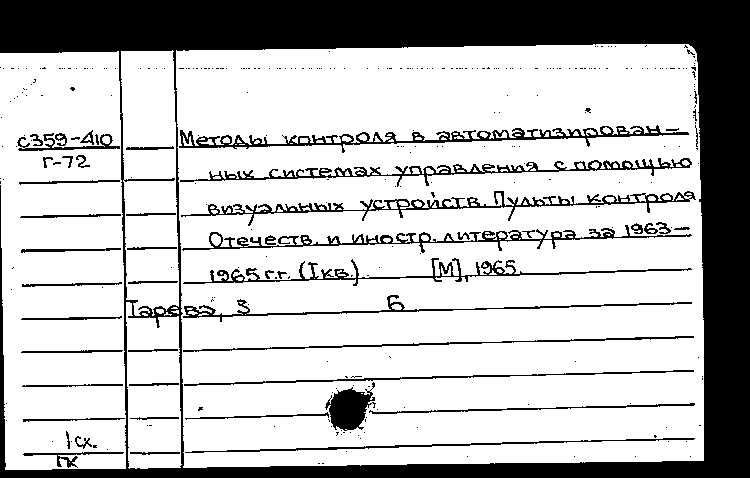 с359-410 Методы контроля в автоматизирован-
г-72 ных системах управления с помощью
визуальных устройств. Пульты контроля.
Отечеств. и иностр. литература за 1963-
1965 г.г. (I кв.) [М], 1965.
Тарева, З Б
1 сх.
ГК